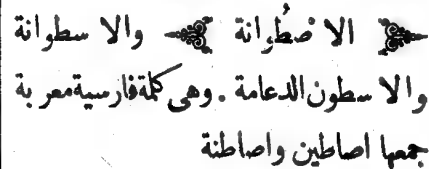 الاصْطُوانة والاسطوانة
والاسطون الدعامة . وهى كلمة فارسية معربة
جمعها اصاطين واصاطنة